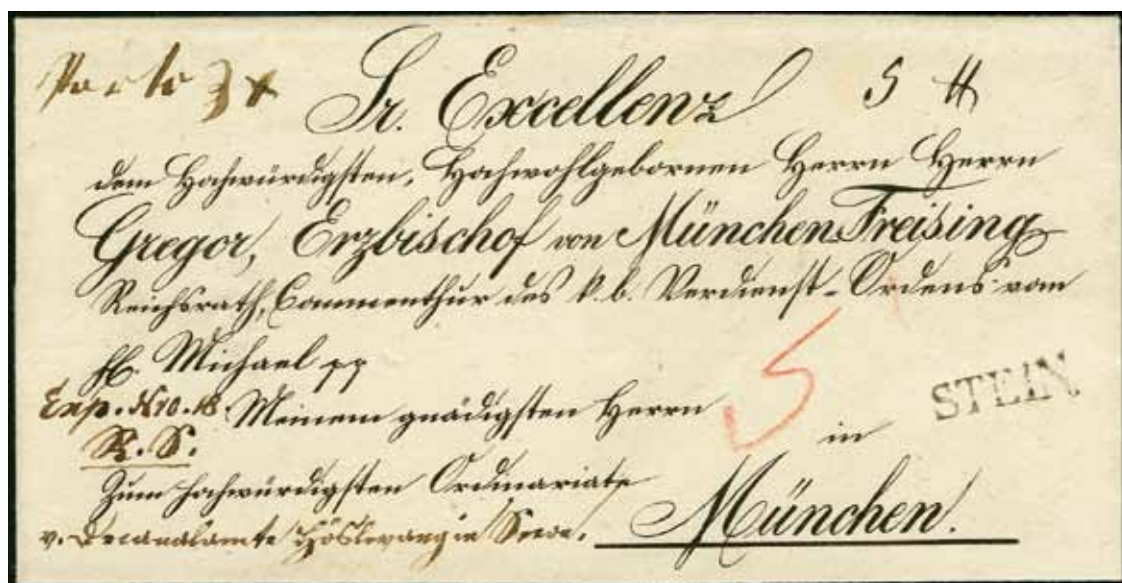 Porto 3 x
Sr. Excellenz
dem Hochwürdigsten, Hochwohlgebornen Herrn Herrn
Gregor, Erzbischof von München-Freising
Reichsrath, Commenthur des k. b. Verdienst-Ordens vom
hl. Michael pp
Exp. Nro. 18. Meinem gnädigsten Herrn
R. S.
in
STEIN.
5
Zum hochwürdigsten Ordinariate
München.
v. Decanalamte Höslwang in Seeon.